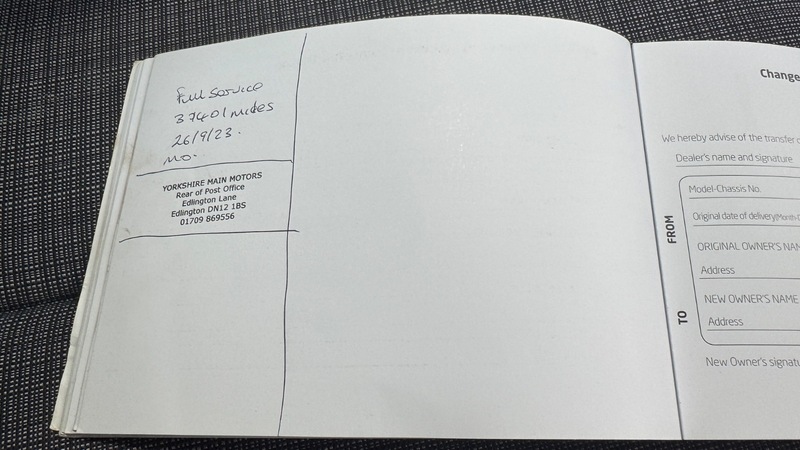 Full Service
37401 miles
26/9/23.
MO.
YORKSHIRE MAIN MOTORS
Rear of Post Office
Edlington Lane
Edlington DN12 1BS
01709 869556
Change
We hereby advise of the transfer
Dealer's name and signature
FROM
Model-Chassis No.
Original date of delivery(Month
ORIGINAL OWNER'S NAM
Address
TO
NEW OWNER'S NAME
Address
New Owner's signatu